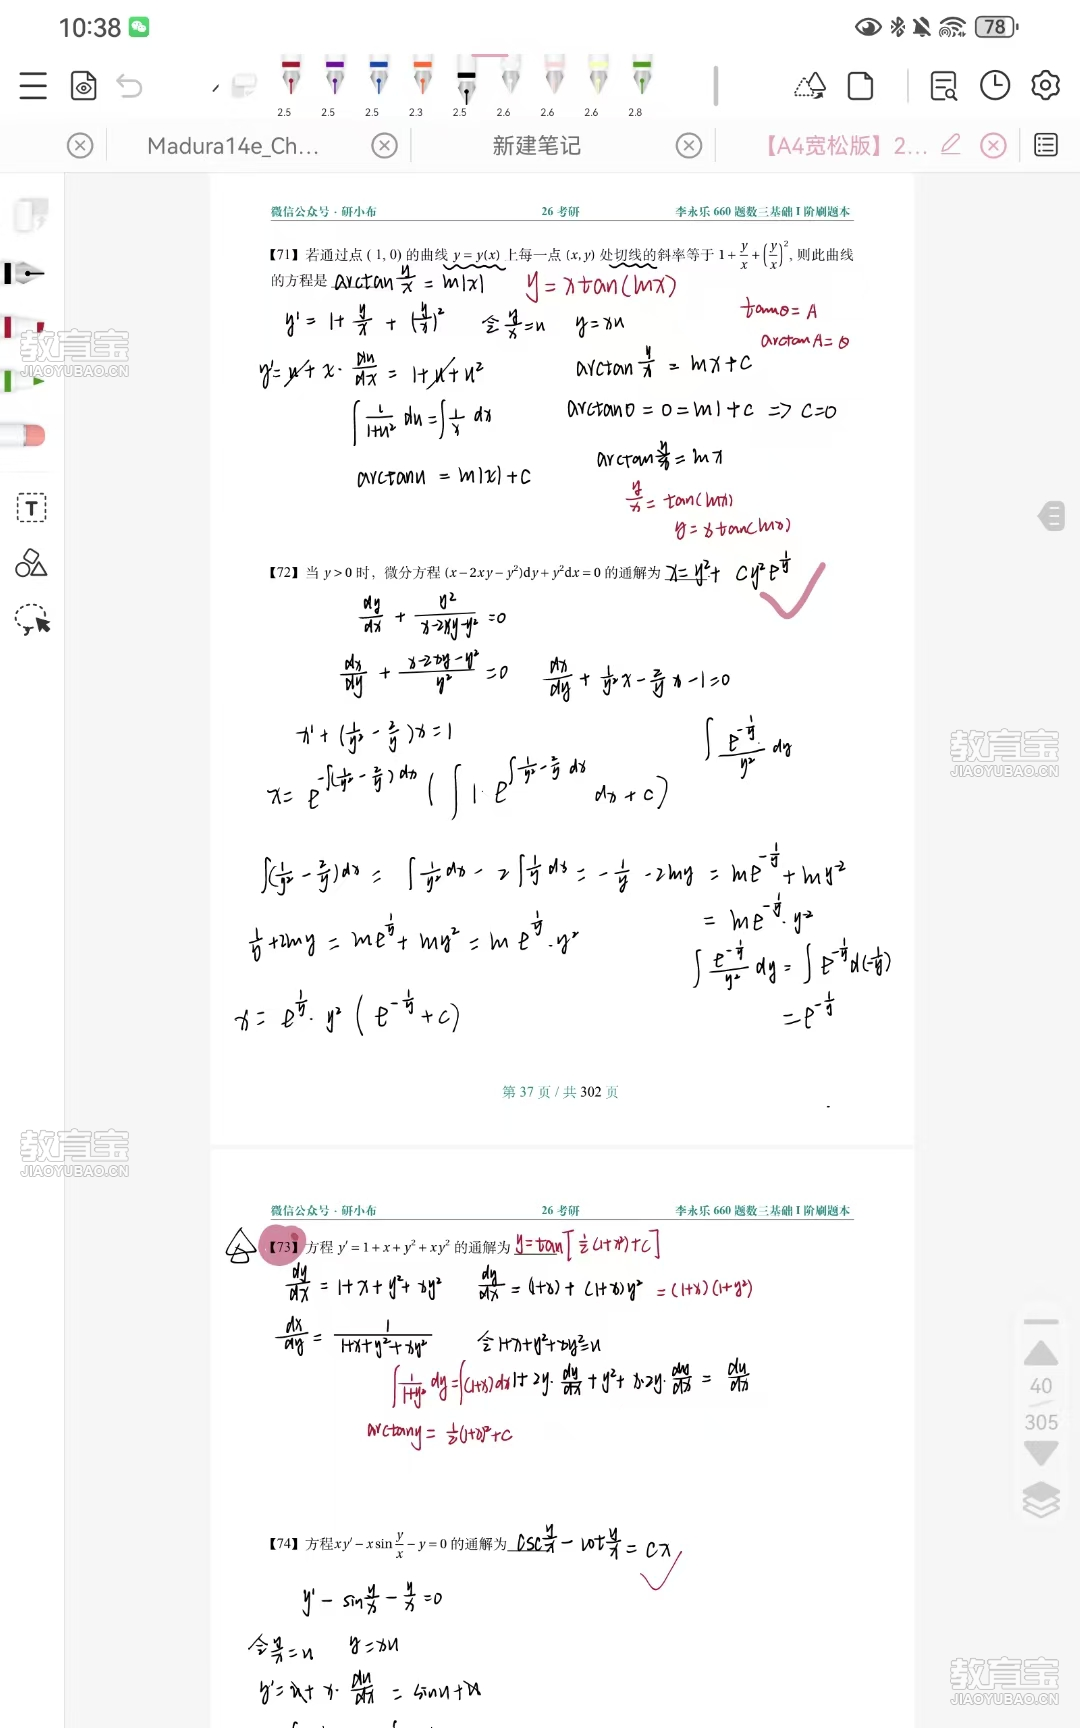 10:38
78
2.5 2.5 2.5 2.3 2.5 2.6 2.6 2.6 2.8
Madura14e_Ch...
新建笔记
【A4宽松版】2...
微信公众号·研小布 26考研 李永乐660题数三基础Ⅰ阶刷题本
【71】若通过点(1,0)的曲线 y=y(x) 上每一点(x,y)处切线的斜率等于 1+y/x+(y/x)²,则此曲线
的方程是 arctan y/x = ln|x| y=xtan(lnx)
y'=1+y/x+(y/x)² 令y/x=u y=xu
tanθ=A
arctanA=θ
y'=u+x·du/dx=1+u+u² arctan y/x = lnx+c
∫1/(1+u²) du=∫1/x dx arctan0=0=ln1+c => c=0
arctanu = ln|x|+c arctan y/x=lnx
y/x=tan(lnx)
y=xtan(lnx)
【72】当 y>0 时,微分方程 (x-2xy-y²)dy+y²dx=0 的通解为 x=y²+ cy²e^(1/y)
dy/dx + y²/(x-2xy-y²) =0
dx/dy + (x-2xy-y²)/y² =0 dx/dy + 1/y² x - 2/y x -1=0
x'+(1/y²-2/y)x=1 ∫ e^(-1/y)/y² dy
x= e^(-∫(1/y²-2/y)dx) (∫1·e^(∫1/y²-2/y dx) dx+c)
∫(1/y²-2/y)dx = ∫1/y² dx - 2∫1/y dx = -1/y -2lny = lne^(-1/y)+lny^-2
= lne^(-1/y)·y^-2
1/y+2lny = lne^(1/y)+lny² = lne^(1/y)·y²
∫ e^(-1/y)/y² dy=∫e^(-1/y)d(-1/y)
x= e^(1/y)·y²(e^(-1/y)+c) =e^(-1/y)
第 37 页 / 共 302 页
微信公众号·研小布 26考研 李永乐660题数三基础Ⅰ阶刷题本
【73】方程 y'=1+x+y²+xy² 的通解为 y=tan[½(1+x)²+c]
dy/dx =1+x+y²+xy² dy/dx=(1+x)+(1+x)y² =(1+x)(1+y²)
dx/dy = 1/(1+x+y²+xy²) 令1+x+y²+xy²=u
∫1/(1+y²) dy=∫(1+x)dx 1+2y·dy/dx+y²+x·2y·dy/dx = du/dx
arctany= ½(1+x)²+c
【74】方程xy'-xsin y/x -y=0 的通解为 csc y/x - cot y/x = cx
y'-sin y/x - y/x=0
令y/x=u y=xu
y'=u+x·du/dx = sinu+u
40
305
教育宝
JIAOYUBAO.CN
教育宝
JIAOYUBAO.CN
教育宝
JIAOYUBAO.CN
教育宝
JIAOYUBAO.CN